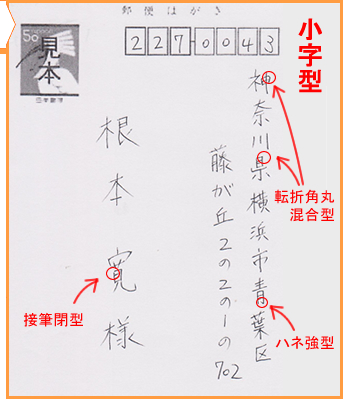 郵便はがき
50
見本
日本郵便
227-0043
小字型
神奈川県横浜市青葉区
藤が丘2の2の1の702
根本寛様
転折角丸
混合型
ハネ強型
接筆閉型